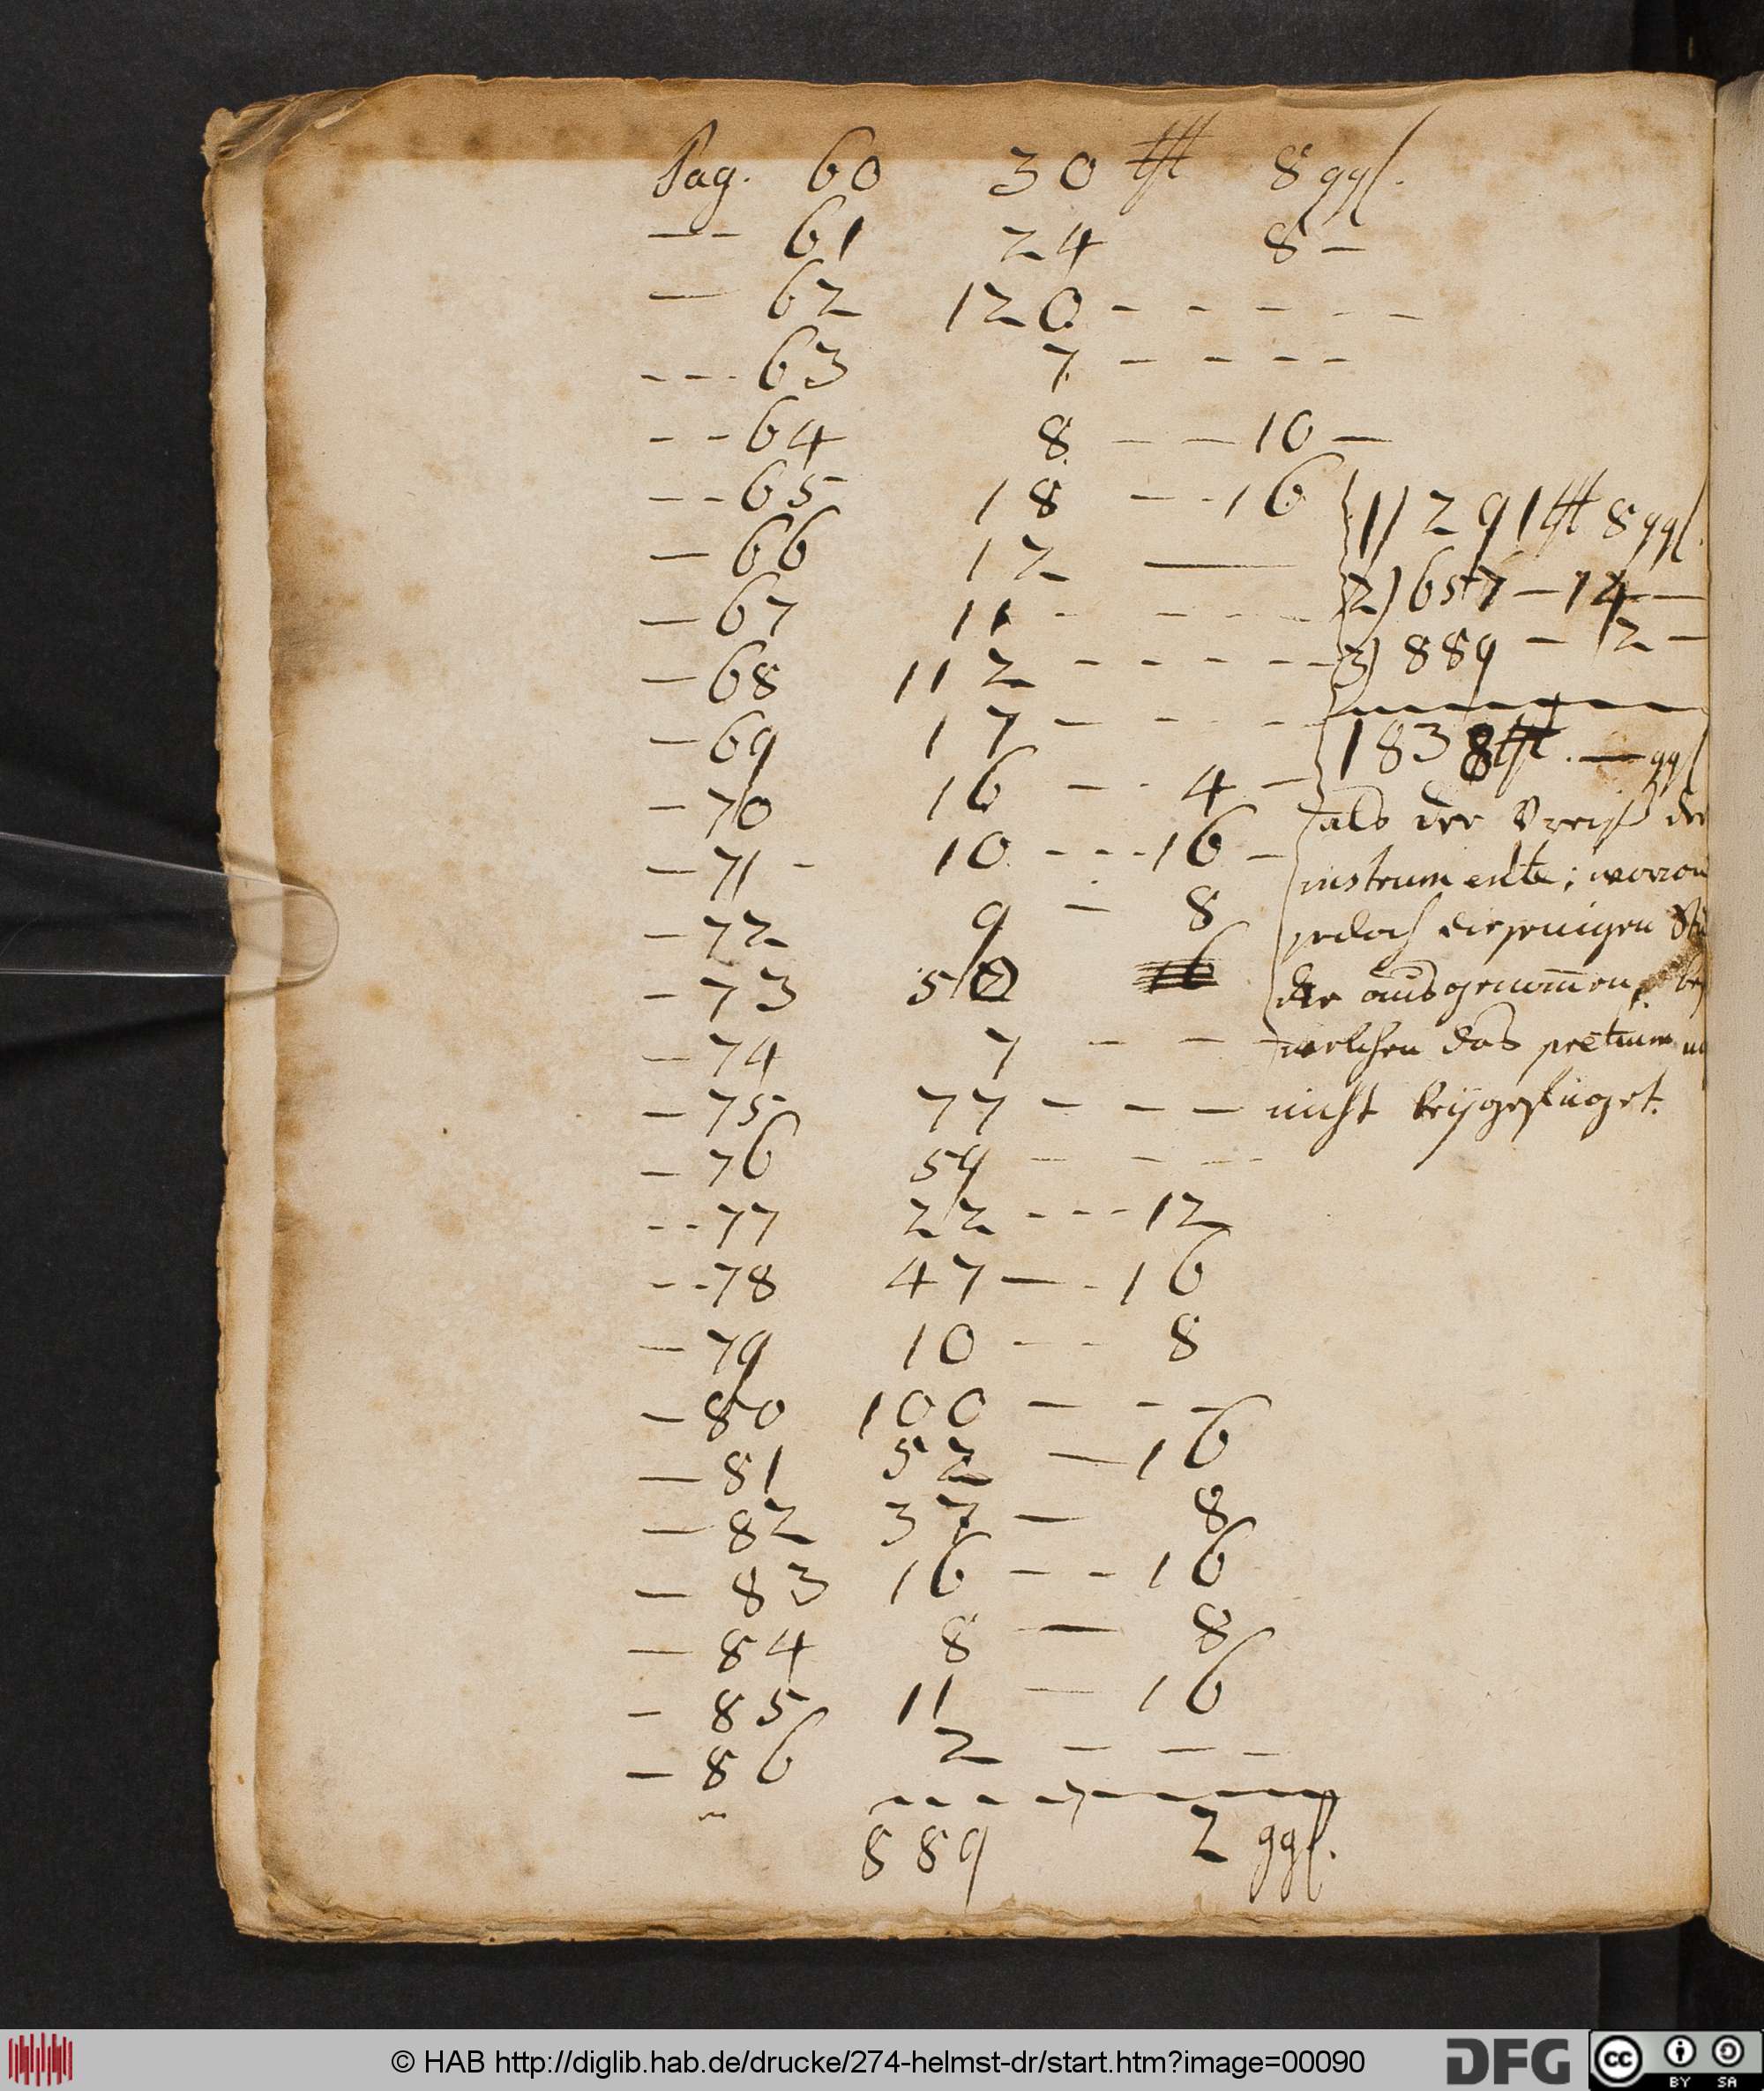 Pag. 60 30 thl 8 ggl.
-- 61 24 8 -
— 62 120 - - - - -
--- 63 7. - - - -
-- 64 8. - - 10 —
-- 65 18 -- 16
— 66 12 ———
— 67 11 - - - - -
— 68 112 - - - - -
— 69 17 - - -
— 70 16 -- 4 -
— 71 - 10 --- 16 -
— 72 9 - 8
— 73 50 16
— 74 7 - - -
— 75 77 - - -
— 76 59 - - - -
-- 77 22 --- 12
--- 78 47 — - 16
— 79 10 - - 8
— 80 100 - - -
— 81 52 — 16
— 82 37 — 8
— 83 16 - - 16
— 84 8 — 8
- 85 11 — 16
— 86 2 - - -
889 2 ggl.
1) 291 thl 8 ggl.
2) 657 — 14 —
3) 889 - 2 -
1838 thl. — ggl
als der Preiß der
instrumente; worvon
jedoch diejenigen
die ausgenom̄en, bey
welchen das pretium
nicht beÿgefüget.
© HAB http://diglib.hab.de/drucke/274-helmst-dr/start.htm?image=00090
DFG
cc
BY SA